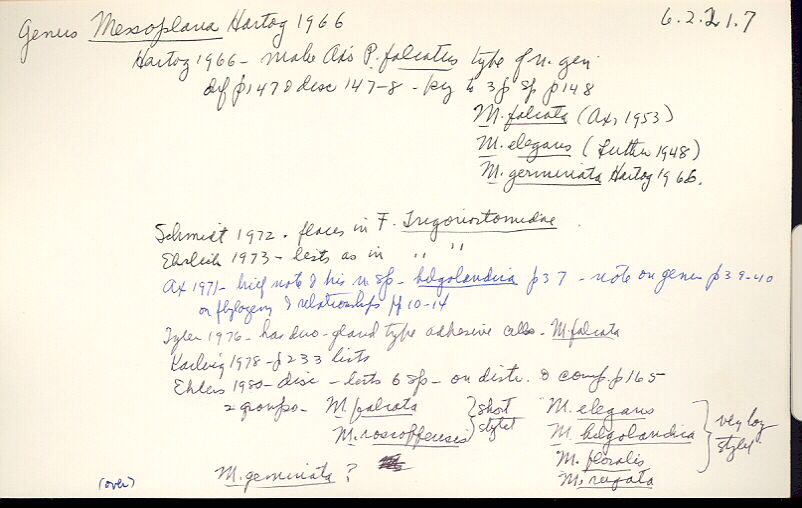 Genus Messoplana Hartog 1966 6.2.21.7
Hartog 1966 - make Ax's P. falcatus type of n. gen
def p147 & desc 147-8 - key to 3 sp p148
M. falcata (Ax, 1953)
M. elegans (Luther 1948)
M. germiniata Hartog 1966.
Schmidt 1972 - places in F. Trigonostomidae
Ehrlich 1973 - lists as in " "
Ax 1971 - brief note & his n. sp - helgolandica p37 - note on genus p39-40
on phylogeny & relationships pp 10-14
Tyler 1976 - has duo-gland type adhesive cells - M. falcata
Karling 1978 - p233 lists
Ehlers 1980 - disc - lists 6 sp - on distr. & comp p165
2 groups - M. falcata } short M. elegans } very long
M. roscoffensis stylet M. helgolandica stylet
M. floralis
M. geminiata ? M. rugata
(over)